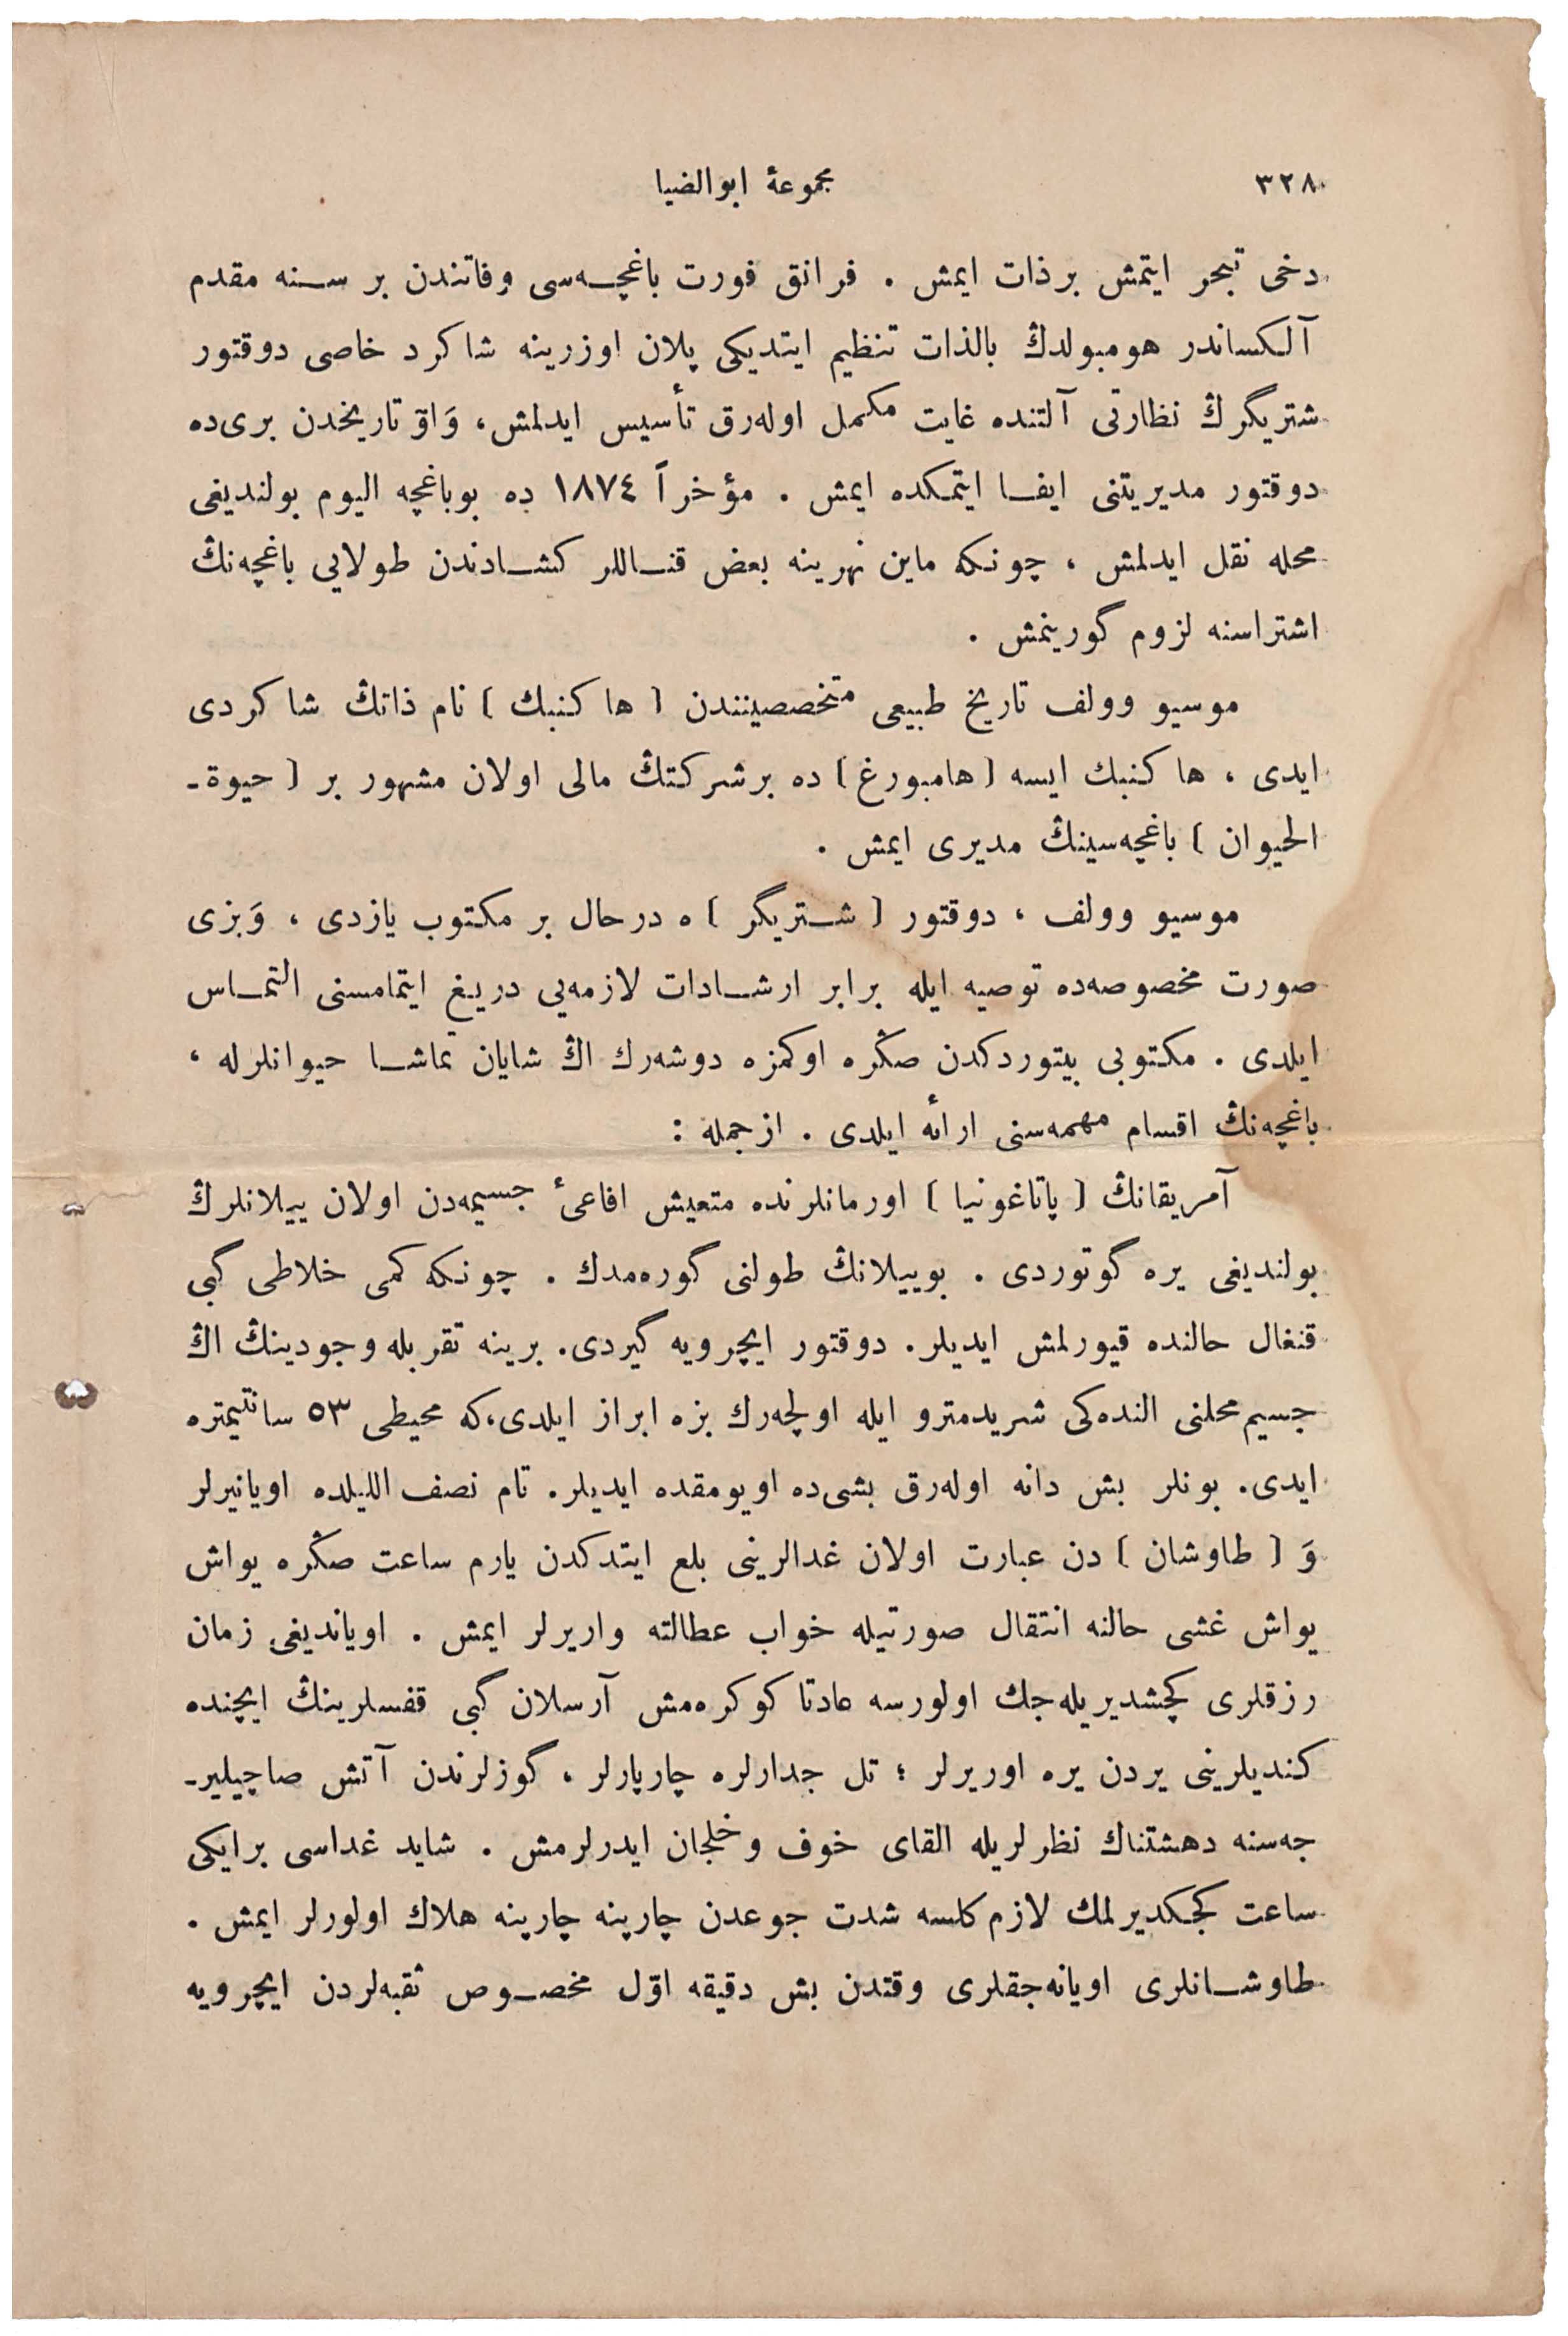 ٣٢٨
مجموعهٔ ابوالضیا
دخی تبحر ایتمش برذات ایمش . فرانق فورت باغچه‌سی وفاتندن بر سنه مقدم
آلکساندر هومبولدڭ بالذات تنظیم ایتدیکی پلان اوزرینه شاکرد خاصی دوقتور
شتریگرڭ نظارتی آلتنده غایت مکمل اوله‌رق تأسیس ایدلمش، وَاوْ تاریخدن بری‌ده
دوقتور مدیریتنی ایفا ایتمکده ایمش . مؤخراً ١٨٧٤ ده بوباغچه الیوم بولندیغی
محله نقل ایدلمش ، چونکه ماین نهرینه بعض قناللر کشادندن طولایی باغچه‌نڭ
اشتراسنه لزوم گورینمش .
موسیو وولف تاریخ طبیعی متخصصینندن [ هاکنبك ] نام ذاتڭ شاکردی
ایدی ، هاکنبك ایسه [هامبورغ] ده برشرکتڭ مالی اولان مشهور بر [ حیوة-
الحیوان ] باغچه‌سینڭ مدیری ایمش .
موسیو وولف ، دوقتور [ شتریگر ] ه درحال بر مکتوب یازدی ، وَبزی
صورت مخصوصه‌ده توصیه ایله برابر ارشادات لازمه‌یی دریغ ایتمامسنی التماس
ایلدی . مکتوبی بیتوردکدن صڭره اوکمزه دوشه‌رك اڭ شایان تماشا حیوانلرله ،
باغچه‌نڭ اقسام مهمه‌سنی ارائه ایلدی . ازجمله :
آمریقانڭ [ پاتاغونیا ] اورمانلرنده متعیش افاعیٔ جسیمه‌دن اولان ییلانلرڭ
بولندیغی یره گوتوردی . بوییلانڭ طولنی گوره‌مدك . چونکه کمی خلاطی گبی
قنغال حالنده قیورلمش ایدیلر. دوقتور ایچرویه گیردی. برینه تقربله وجودینڭ اڭ
جسیم محلنی النده‌کی شریدمترو ایله اولچه‌رك بزه ابراز ایلدی،که محیطی ٥٣ سانتیمتره
ایدی. بونلر بش دانه اوله‌رق بشی‌ده اویومقده ایدیلر. تام نصف اللیلده اویانیرلر
وَ [ طاوشان ] دن عبارت اولان غدالرینی بلع ایتدکدن یارم ساعت صڭره یواش
یواش غشی حالنه انتقال صورتیله خواب عطالته واریرلر ایمش . اویاندیغی زمان
رزقلری گچشدیریله‌جك اولورسه عادتا کوکره‌مش آرسلان گبی قفسلرینڭ ایچنده
کندیلرینی یردن یره اوریرلر ؛ تل جدارلره چارپارلر ، گوزلرندن آتش صاچیلیر-
جه‌سنه دهشتناك نظرلریله القای خوف و خلجان ایدرلرمش . شاید غداسی برایکی
ساعت گجکدیرلمك لازم کلسه شدت جوعدن چارپنه چارپنه هلاك اولورلر ایمش .
طاوشانلری اویانه‌جقلری وقتدن بش دقیقه اوّل مخصوص ثقبه‌لردن ایچرویه